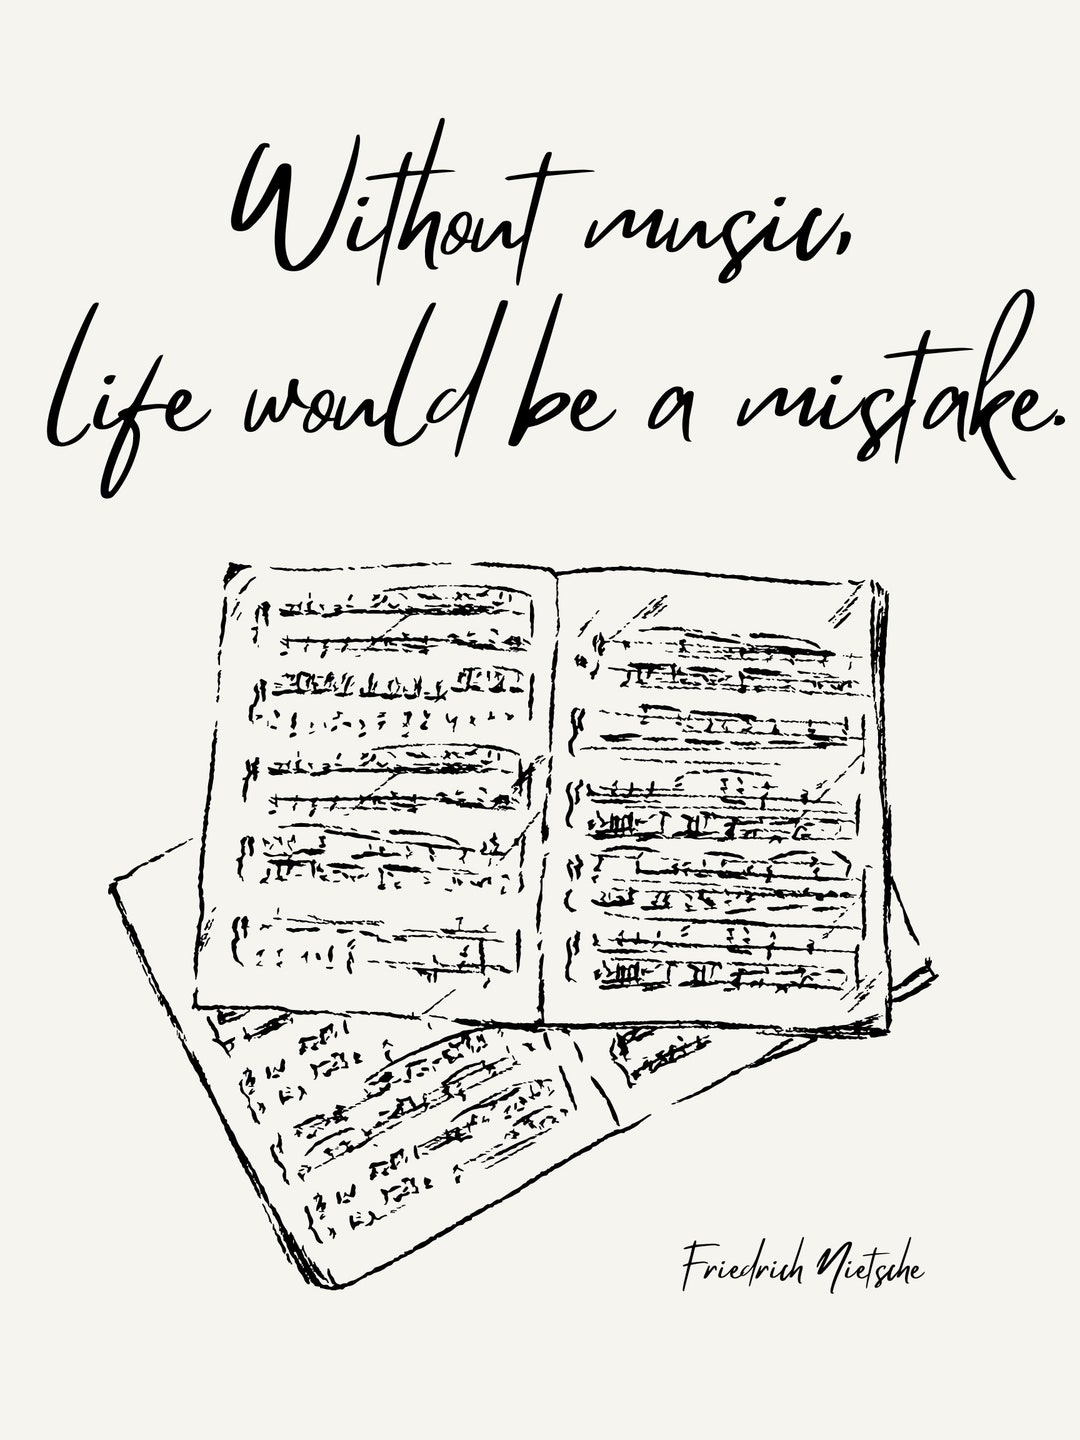 Without music,
life would be a mistake.
Friedrich Nietsche